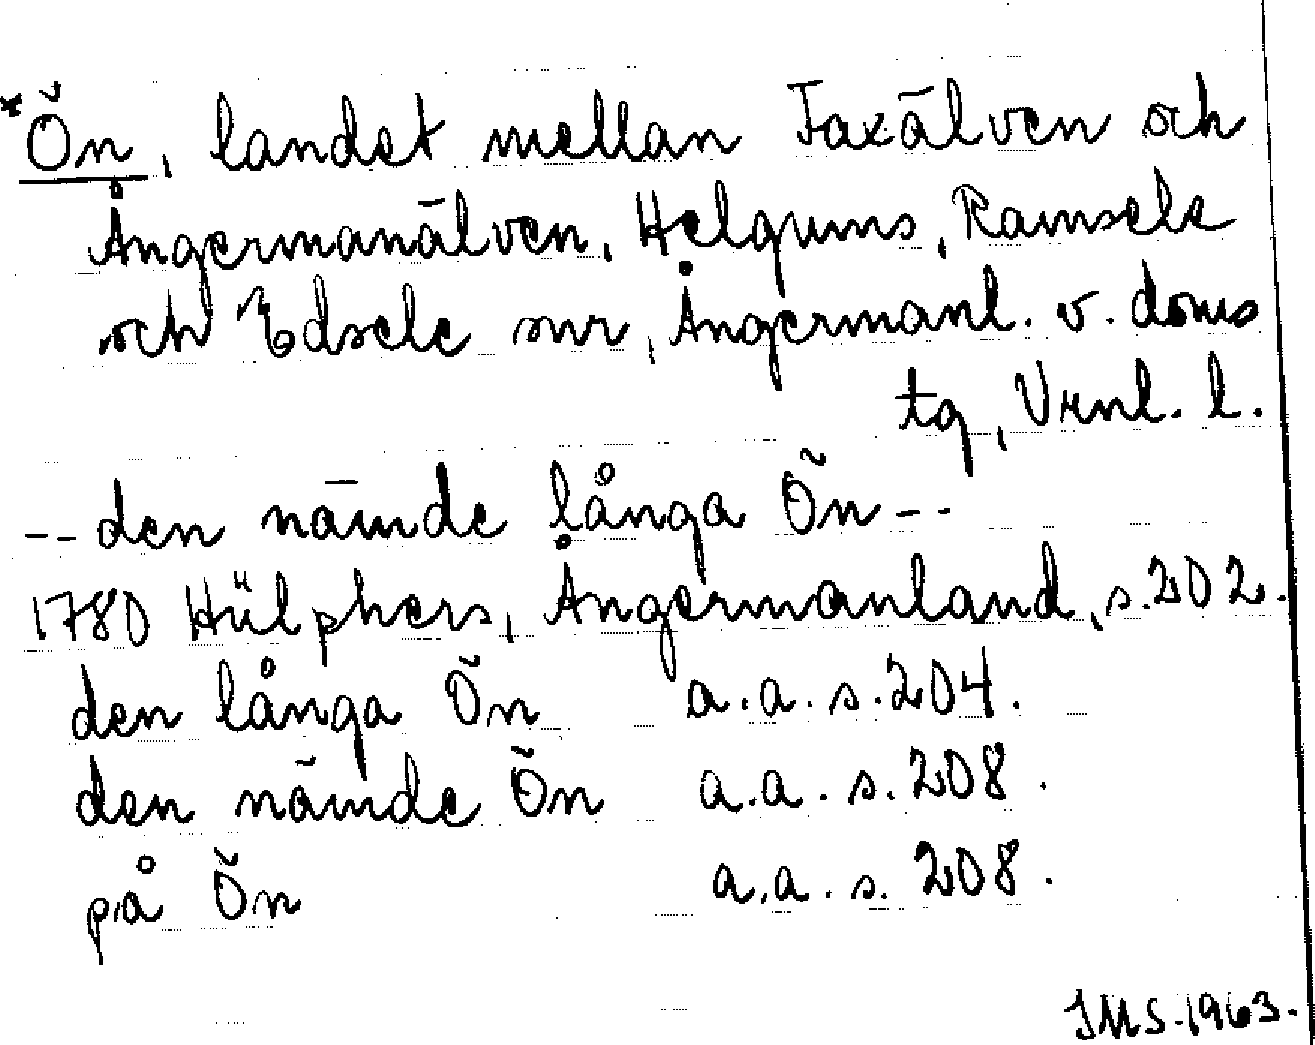 *Ön, landet mellan Faxälven och
Ångermanälven, Helgums, Ramsele
och Edsele snr, Ångermanl. v. doms
tg, Vrnl. l.
-- den nämde långa Ön --
1780 Hülphers, Ångermanland, s. 202.
den långa Ön a. a. s. 204.
den nämde Ön a. a. s. 208.
på Ön a. a. s. 208.
JMS. 1963.